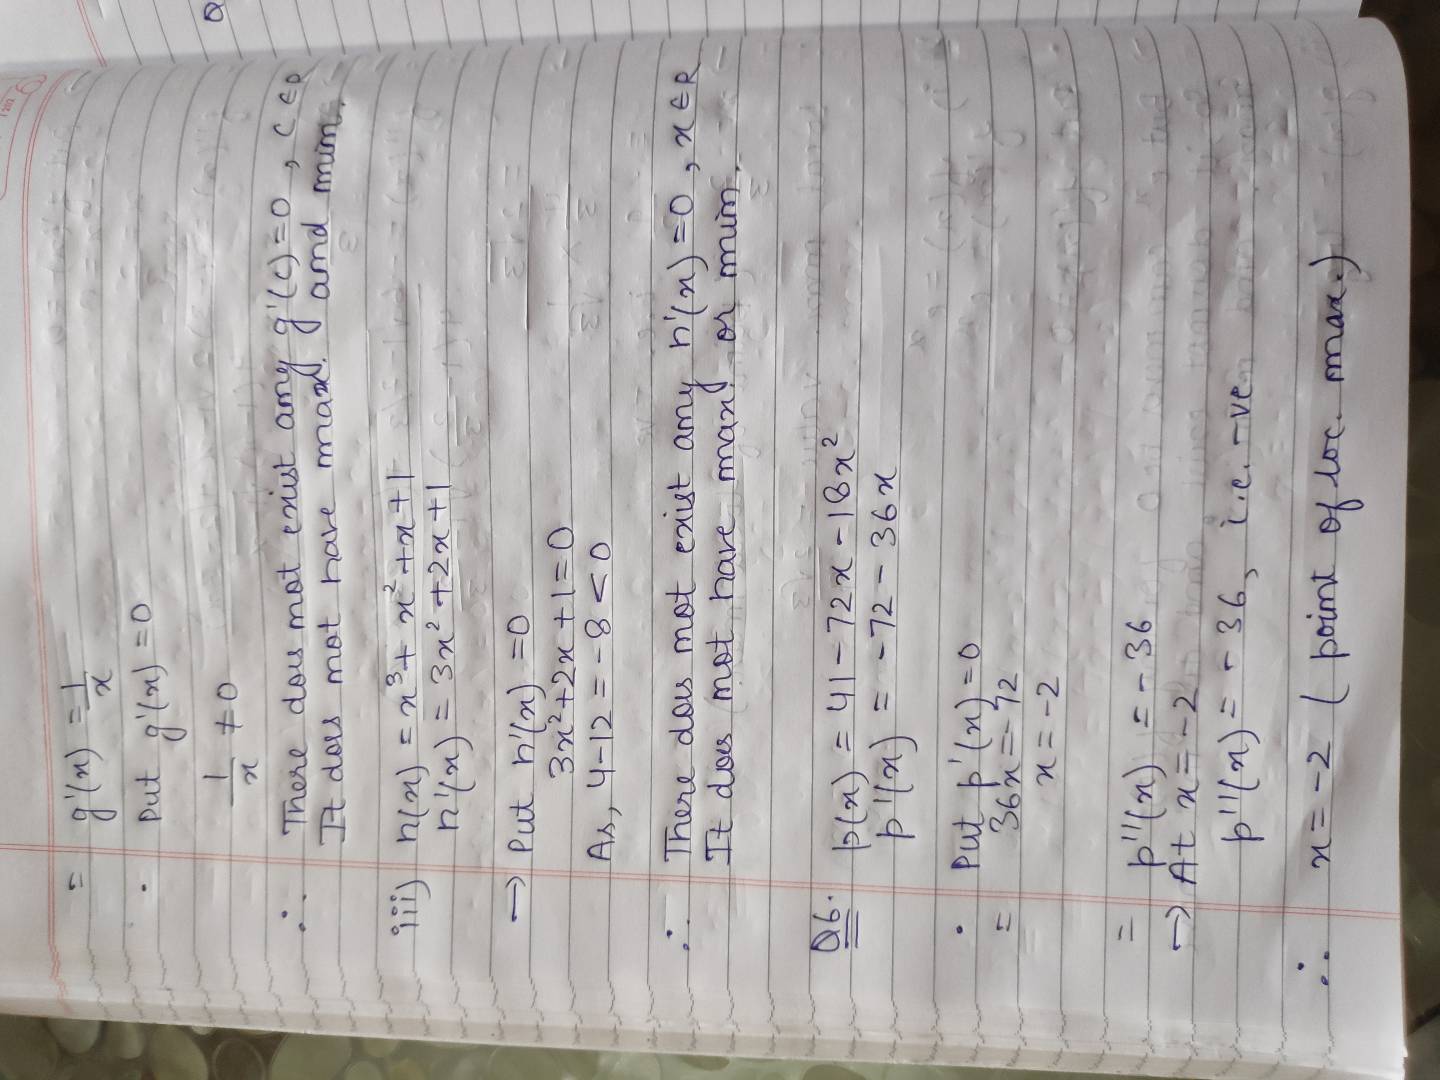 = g'(x) = 1/x
• Put g'(x) = 0
1/x ≠ 0
∴ There does not exist any g'(c) = 0, c ∈ R
It does not have max. and min.
iii) h(x) = x³ + x² + x + 1
h'(x) = 3x² + 2x + 1
→ Put h'(x) = 0
3x² + 2x + 1 = 0
As, 4 - 12 = - 8 < 0
∴ There does not exist any h'(x) = 0, x ∈ R
It does not have max or min.
Q6. p(x) = 41 - 72x - 18x²
p'(x) = -72 - 36x
• Put p'(x) = 0
= 36x = -72
x = -2
= p''(x) = -36
→ At x = -2
p''(x) = -36, i.e. -ve
∴ x = -2 (point of loc. max.)